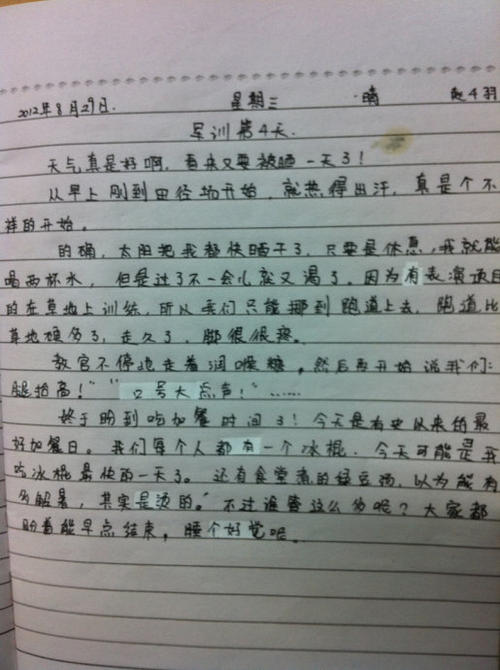 2012年8月29日. 星期三 晴
军训第4天.
天气真是好啊，看来又要被晒一天了！
从早上刚到田径场开始，就热得出汗，真是个不
祥的开始。
的确，太阳把我都快晒干了，只要是休息，我就能
喝两杯水，但是过了不一会儿就又渴了。因为有表演项目
的在草地上训练，所以我们只能挪到跑道上去，跑道比
草地硬多了，走久了，脚很很疼。
教官不停地走着润喉糖，然后再开始说我们：
腿抬高！”“口号大点声！”……
终于盼到吃加餐时间了！今天是有史以来的最
好加餐日。我们每个人都有一个冰棍，今天可能是我
吃冰棍最快的一天了。还有食堂煮的绿豆汤，以为能有
多解暑，其实是烫的。”不过谁管这么多呢？大家都
盼着能早点结束，睡个好觉呢。